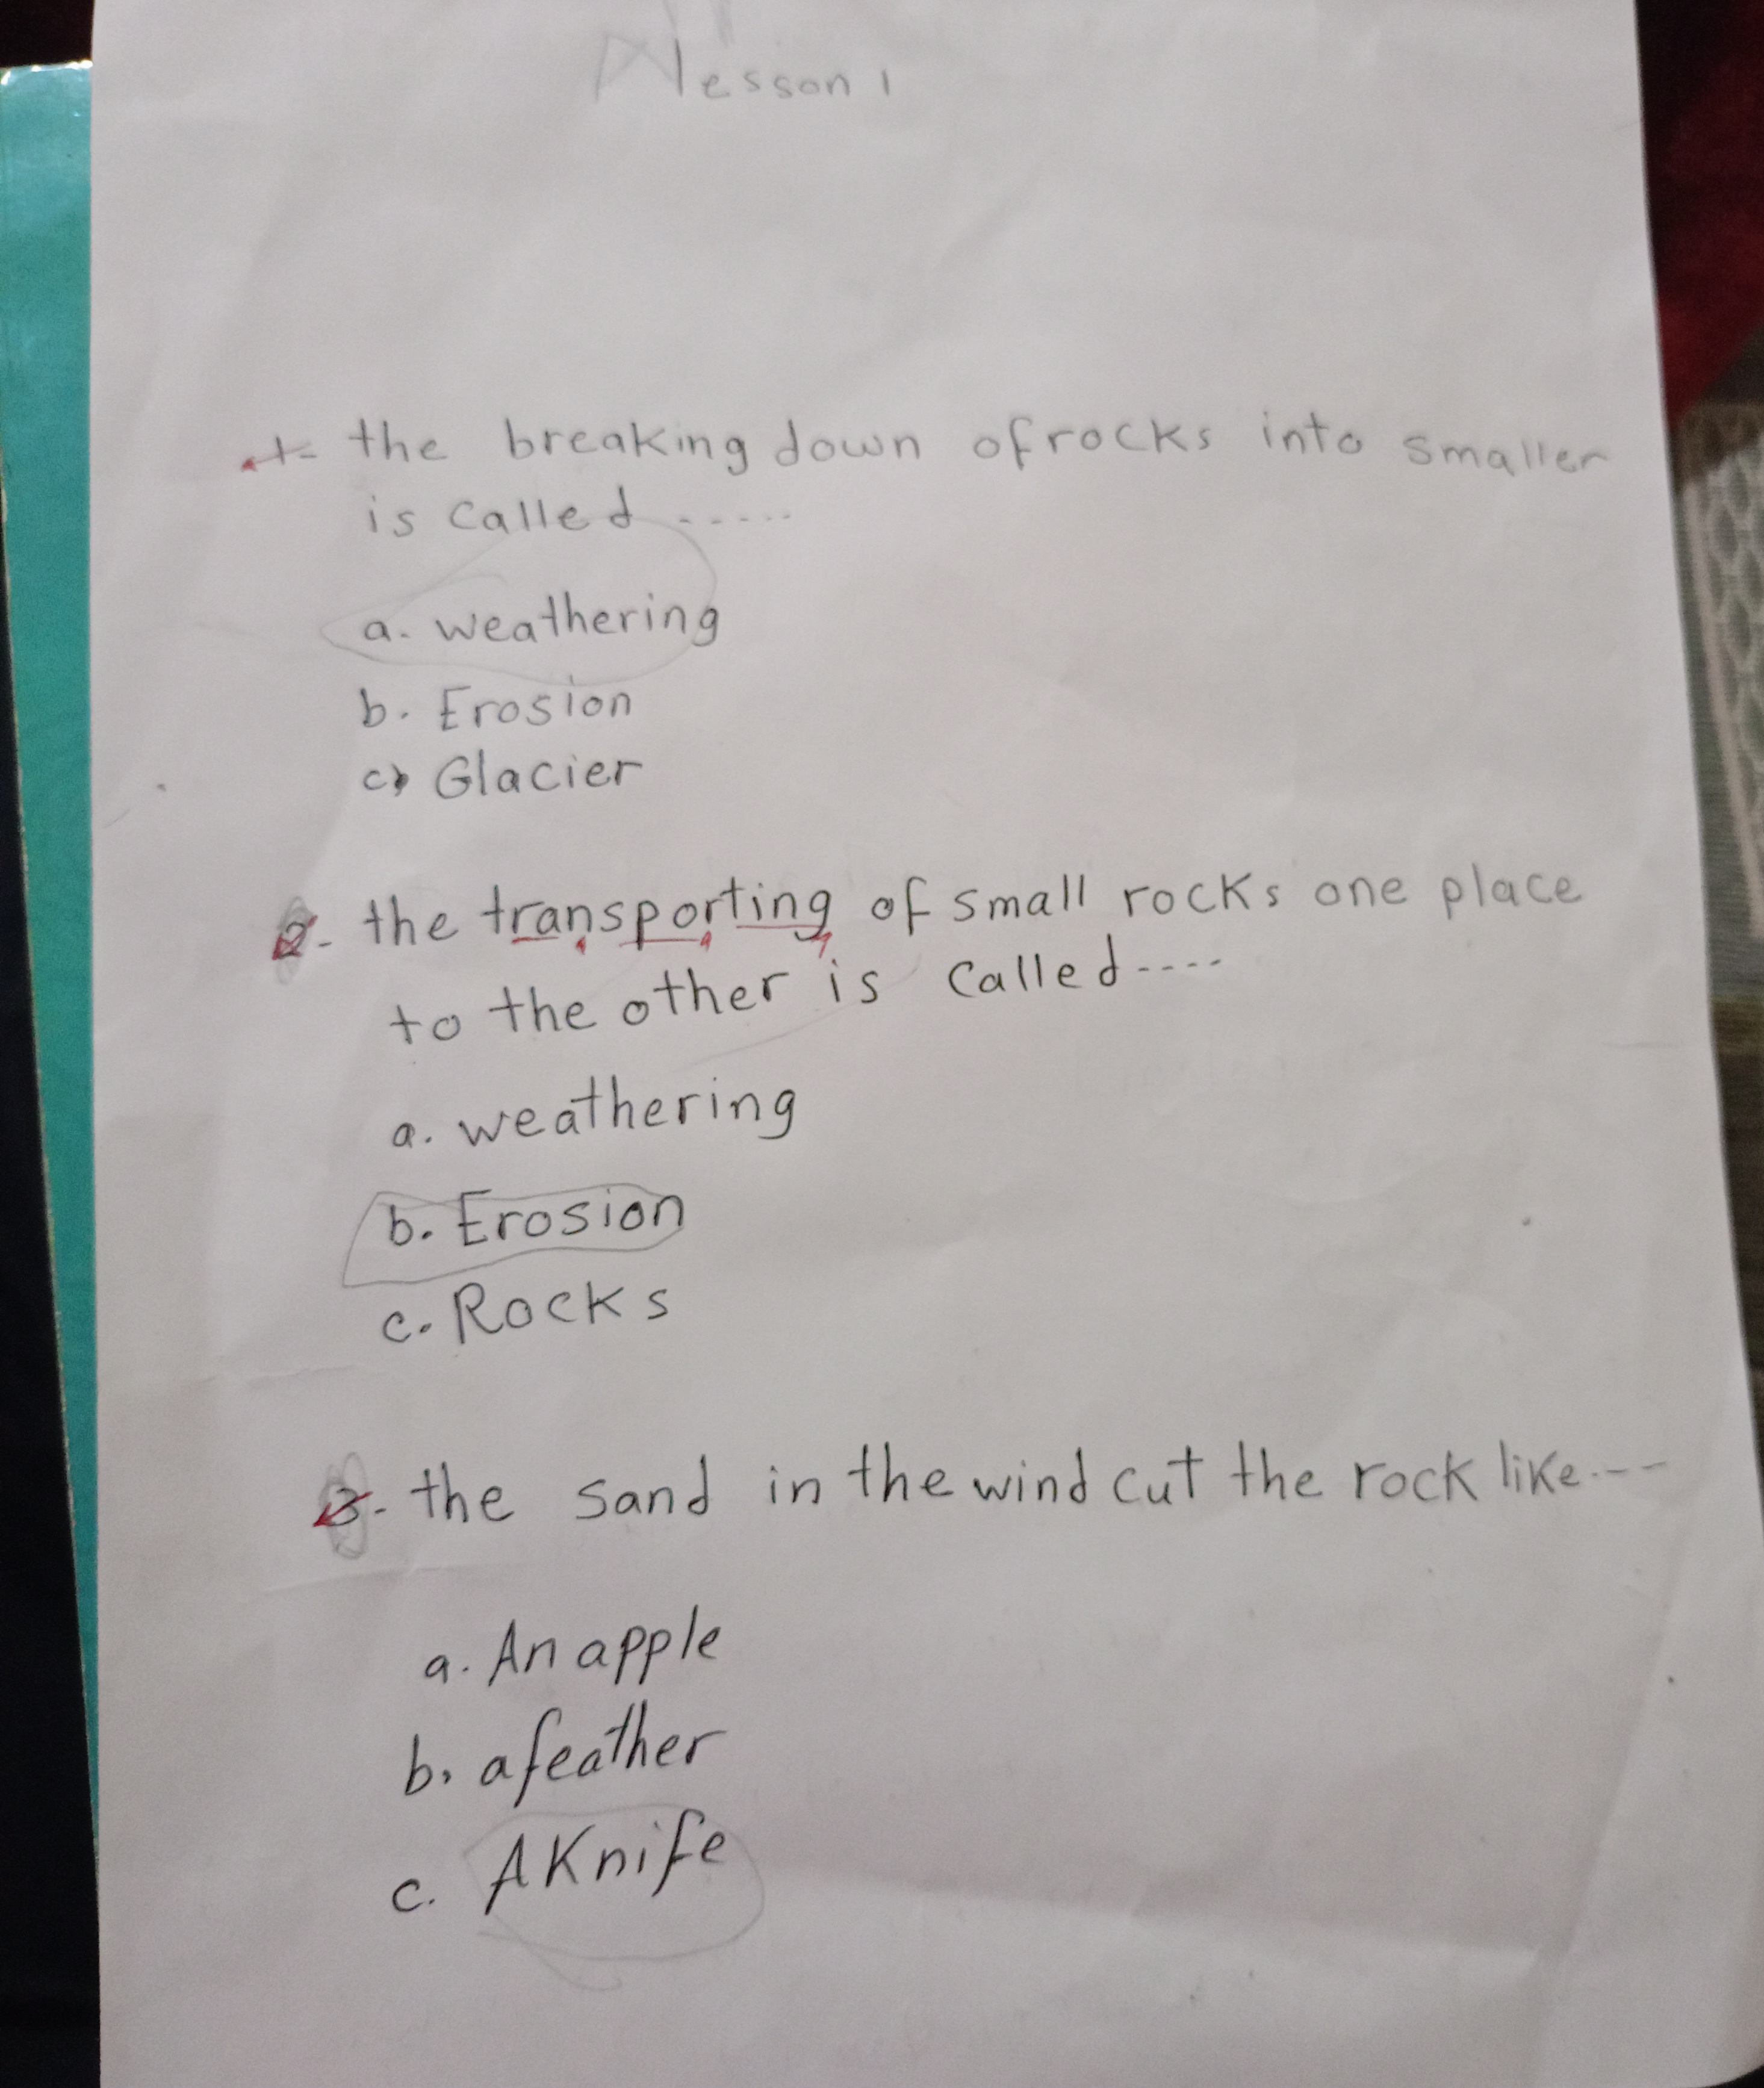 lesson 1
1- the breaking down of rocks into smaller
is called .....
a. weathering
b. Erosion
c. Glacier
2- the transporting of small rocks one place
to the other is called ----
a. weathering
b. Erosion
c. Rocks
3- the sand in the wind cut the rock like ---
a. An apple
b. a feather
c. A Knife